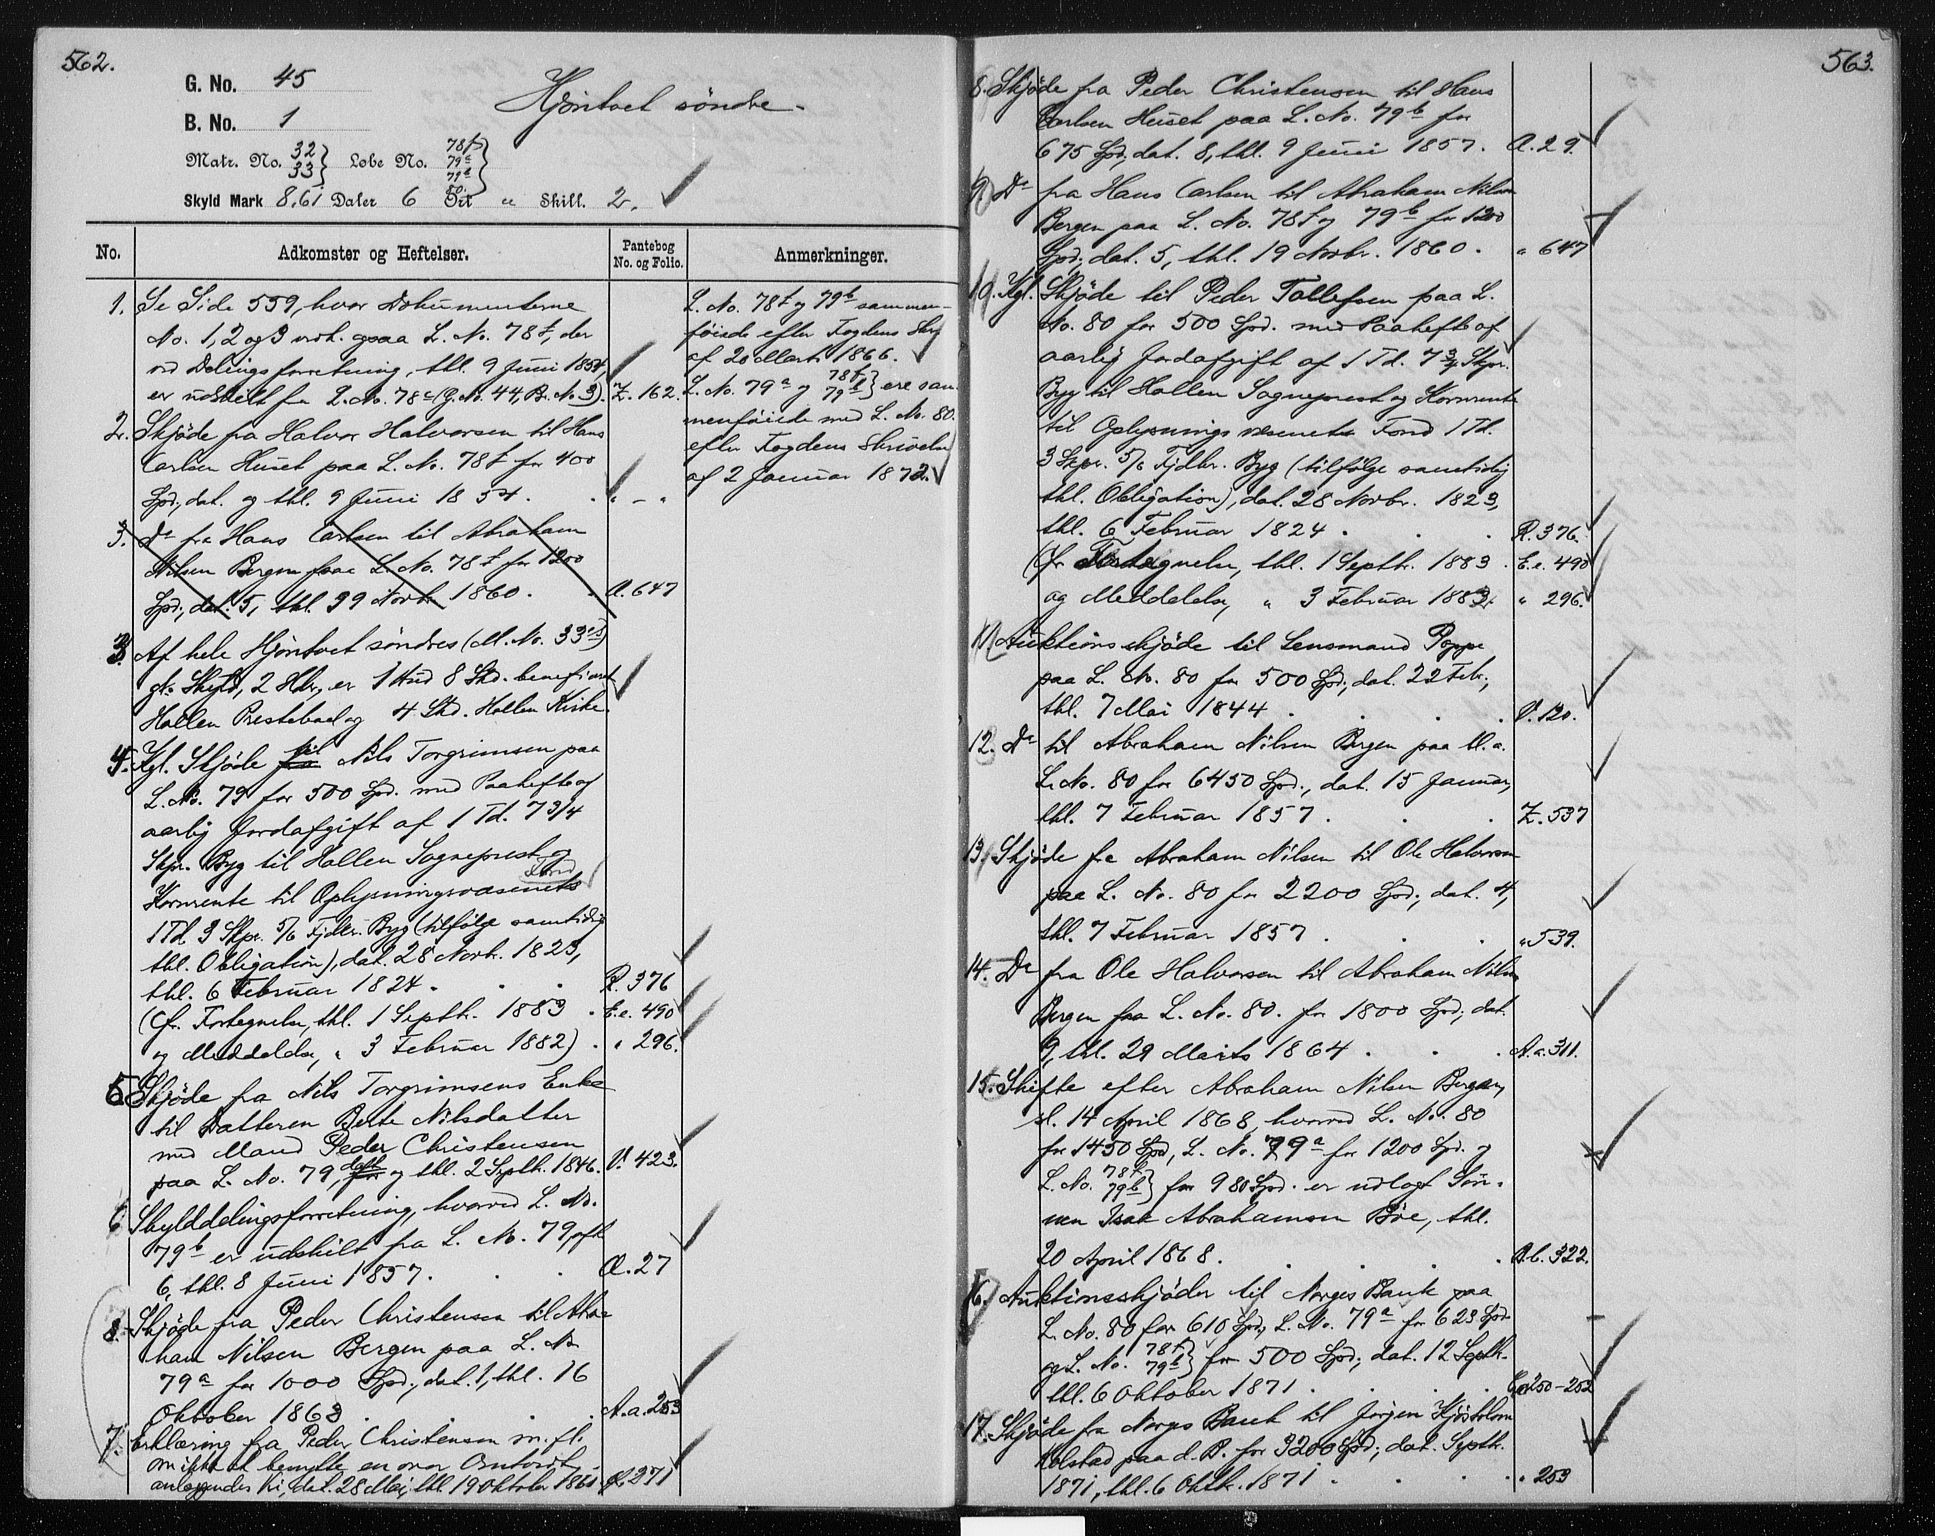 562.
G. No. 45
B. No. 1
Hjöntvet söndre.
Matr. No. 32 33 } Løbe No. 78f 79a 79b 80. }
Skyld Mark 8,61 Daler 6 Ort " Skill. 2.
No. Adkomster og Heftelser. Pantebog No. og Folio. Anmerkninger.
1. Se Side 559, hvor Dokumenterne
No. 1, 2 og 3 vedk. ogsaa L. No. 78f, der
ved Delingsforretning, thl. 9 Juni 1854,
er udskilt fra L. No. 78c (G. No. 44, B. No. 3). Z. 162.
2. Skjöde fra Halvor Halvorsen til Hans
Carlsen Huset paa L. No. 78f for 400
Spd., dat. og thl. 9 Juni 1854. " - "
3. Do fra Hans Carlsen til Abraham
Nilsen Bergen paa L. No. 78f for 1200
Spd., dat. 5, thl. 39 Novbr. 1860. A. 647
3. Af hele Hjöntvet söndres (M. No. 33's)
gl. Skyld, 2 Hdr., er 1 Hud 8 Skd. beneficeret
Hollen Prestebord og 4 Skd. Hollen Kirke.
4. Kgl. Skjöde fra til Nils Torgrimsen paa
L. No. 79 for 500 Spd. med Paahefte af
aarlig Jordafgift af 1 Td. 7 3/4
Skpr. Byg til Hollen Sogneprest og
Kornrente til Oplysningsvæsenets Fond
1 Td 3 Skpr. 5/6 Fjdkr. Byg (tilfölge samtidig
thl. Obligation), dat. 28 Novbr. 1823,
thl. 6 Februar 1824. R. 376
(Cfr. Fortegnelse, thl. 1 Septbr. 1883. E.e. 490
og Meddelelse, " 3 Februar 1882). " 296.
5. Skjöde fra Nils Torgrimsens Enke
til Datteren Berte Nilsdatter
med Mand Peder Christensen
paa L. No. 79, for dat. og thl. 2 Septbr. 1846. V. 423.
6. Skylddelingsforretning, hvorved L. No.
79b er udskilt fra L. No. 79, afh.
6, thl. 8 Juni 1857. A. 27
8. Skjöde fra Peder Christensen til Abra-
ham Nilsen Bergen paa L. No
79a for 1000 Spd., dat. 1, thl. 16
Oktober 1863. A.a. 253
7. Erklæring fra Peder Christensen m. fl.
om ikke at benytte en over Omtvedt
anlæggendes Vei, dat. 28 Mai, thl 19 Oktober 1860. A. 271
L. No. 78f og 79b sammen-
föiede efter Fogdens Skr.
af 20 Marts 1866.
L. No. 79a og 78f 79b } ere sam-
menföiede med L. No. 80.
efter Fogdens Skrivelse
af 2 Januar 1872.
563.
8. Skjöde fra Peder Christensen til Hans
Carlsen Huset paa L. No. 79b for
675 Spd., dat. 8, thl. 9 Juni 1857. A. 29.
9. Do fra Hans Carlsen til Abraham Nilsen
Bergen paa L. No. 78f og 79b for 1200
Spd., dat. 5, thl. 19 Novbr. 1860. " 647
10. Kgl. Skjöde til Peder Tollefsen paa L.
No. 80 for 500 Spd. med Paahefte af
aarlig Jordafgift af 1 Td. 7 3/4 Skpr.
Byg til Hollen Sogneprest og Kornrente
til Oplysningsvæsenets Fond 1 Td.
3 Skpr. 5/6 Fjdkr. Byg (tilfölge samtidig
thl. Obligation), dat. 28 Novbr. 1823,
thl. 6 Februar 1824. R. 376.
(Cfr. Fortegnelse, thl. 1 Septbr. 1883. E.e. 490
og Meddelelse, " 3 Februar 1882. " 296.
11. Auktionsskjöde til Lensmand Poppe
paa L. No. 80 for 500 Spd., dat. 22 Febr.,
thl. 7 Mai 1844. V. 120.
12. Do til Abraham Nilsen Bergen paa bl. a.
L. No. 80 for 6450 Spd., dat. 15 Januar,
thl. 7 Februar 1857. Z. 537
13. Skjöde fra Abraham Nilsen til Ole Halvorsen
paa L. No. 80 for 2200 Spd., dat. 4,
thl. 7 Februar 1857. " 539.
14. Do fra Ole Halvorsen til Abraham Nilsen
Bergen paa L. No. 80. for 1800 Spd., dat.
9, thl. 29 Marts 1864. A.a. 311.
15. Skifte efter Abraham Nilsen Bergen,
sl. 14 April 1868, hvorved L. No. 80
for 1450 Spd, L. No. 79a for 1200 Spd. og
L. No. 78f 79b } for 980 Spd. er udlagt Søn-
nen Isak Abrahamsen Böe, thl.
20 April 1868. A.b. 322.
16. Auktionsskjöder til Norges Bank paa
L. No. 80 for 610 Spd., L. No. 79a for 623 Spd.
og L. No. 78f 79b } for 500 Spd., dat. 12 Septbr.
thl. 6 Oktober 1871. 250-252
17. Skjöde fra Norges Bank til Jörgen
Kolstad paa d. P. for 3200 Spd., dat. Septbr.
1871, thl. 6 Oktbr. 1871. " 253